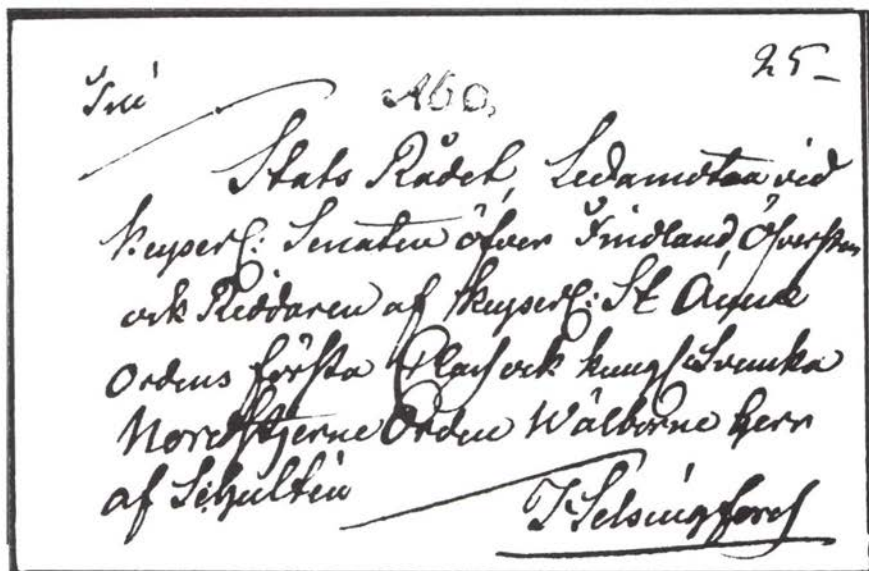 25_
Åbo,
Stats Rådet, Ledamoten vid
Keyserl: Senaten öfver Finland, Öfversten
och Riddaren af Keyserl: St Anne
Ordens första Class och Kungl: Svenska
Nordstjerne Orden Wälborne Herr
af Schultén
Helsingfors